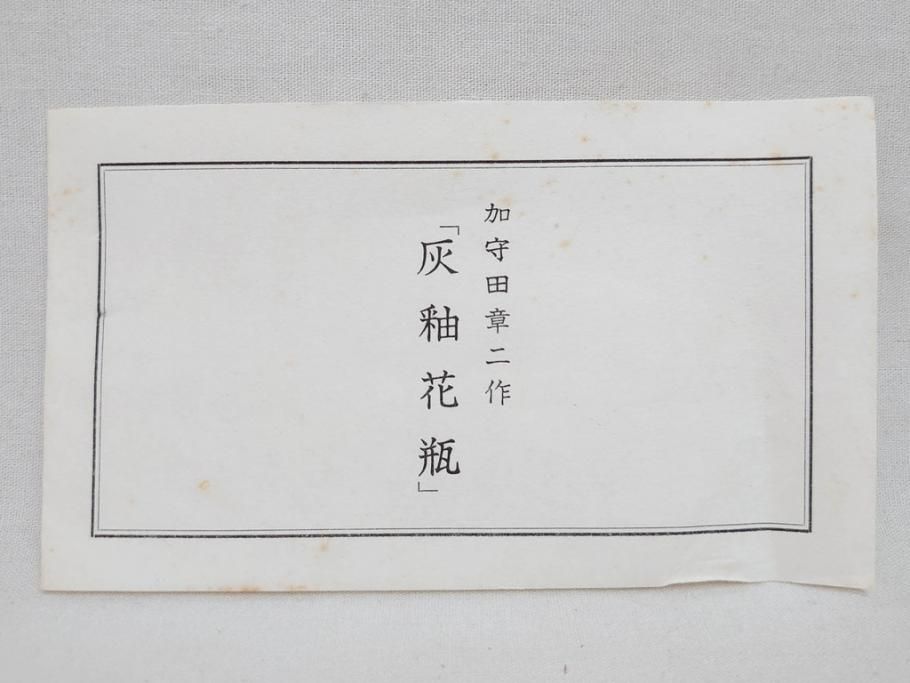 加守田章二作
「灰釉花瓶」